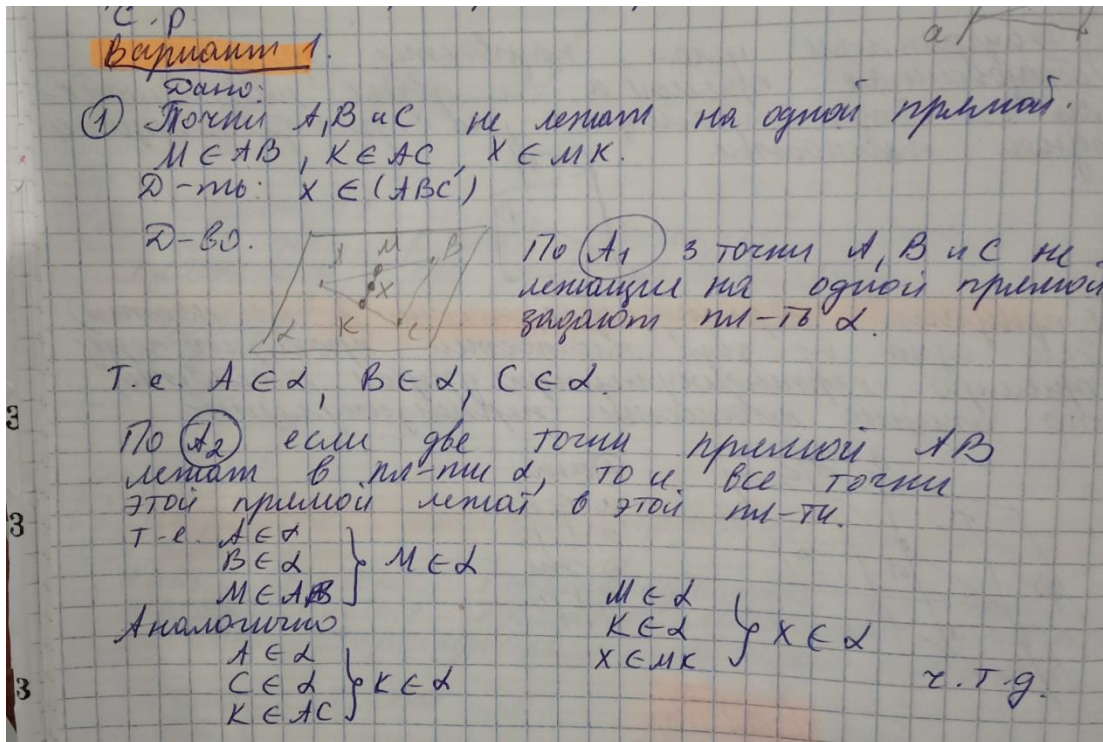 С. р.
Вариант 1.
Дано:
① Точки А, В и С не лежат на одной прямой.
M ∈ AB, K ∈ AC, X ∈ MK.
Д-ть: X ∈ (ABC)
Д-во.
a
M
B
X
K
C
α
По A₁ 3 точки А, В и С не
лежащие на одной прямой
задают пл-ть α.
Т.е. A ∈ α, B ∈ α, C ∈ α.
По A₂ если две точки прямой АВ
лежат в пл-ти α, то и все точки
этой прямой лежат в этой пл-ти.
т-е. A ∈ α
B ∈ α } M ∈ α
M ∈ AB
Аналогично
A ∈ α
C ∈ α } K ∈ α
K ∈ AC
M ∈ α
K ∈ α } X ∈ α
X ∈ MK
ч.т.д.
3
3
3